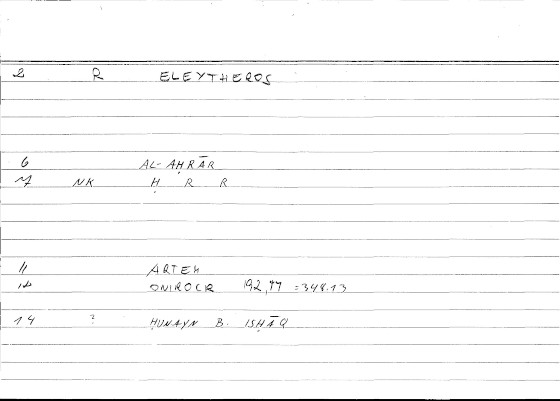 2 R ELEYTHEROS
6 AL-AḤRĀR
7 NK Ḥ R R
11 ARTEM
12 ONIROCR 192,17 = 348.13
14 ? ḤUNAYN B. ISḤĀQ